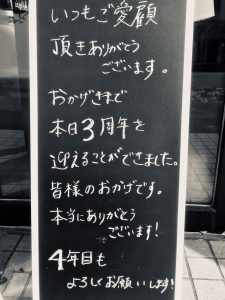 いつもご愛顧
頂きありがとう
ございます。
おかげさまで
本日3周年を
迎えることができました。
皆様のおかげです。
本当にありがとう
ございます!
4年目も
よろしくお願いします!